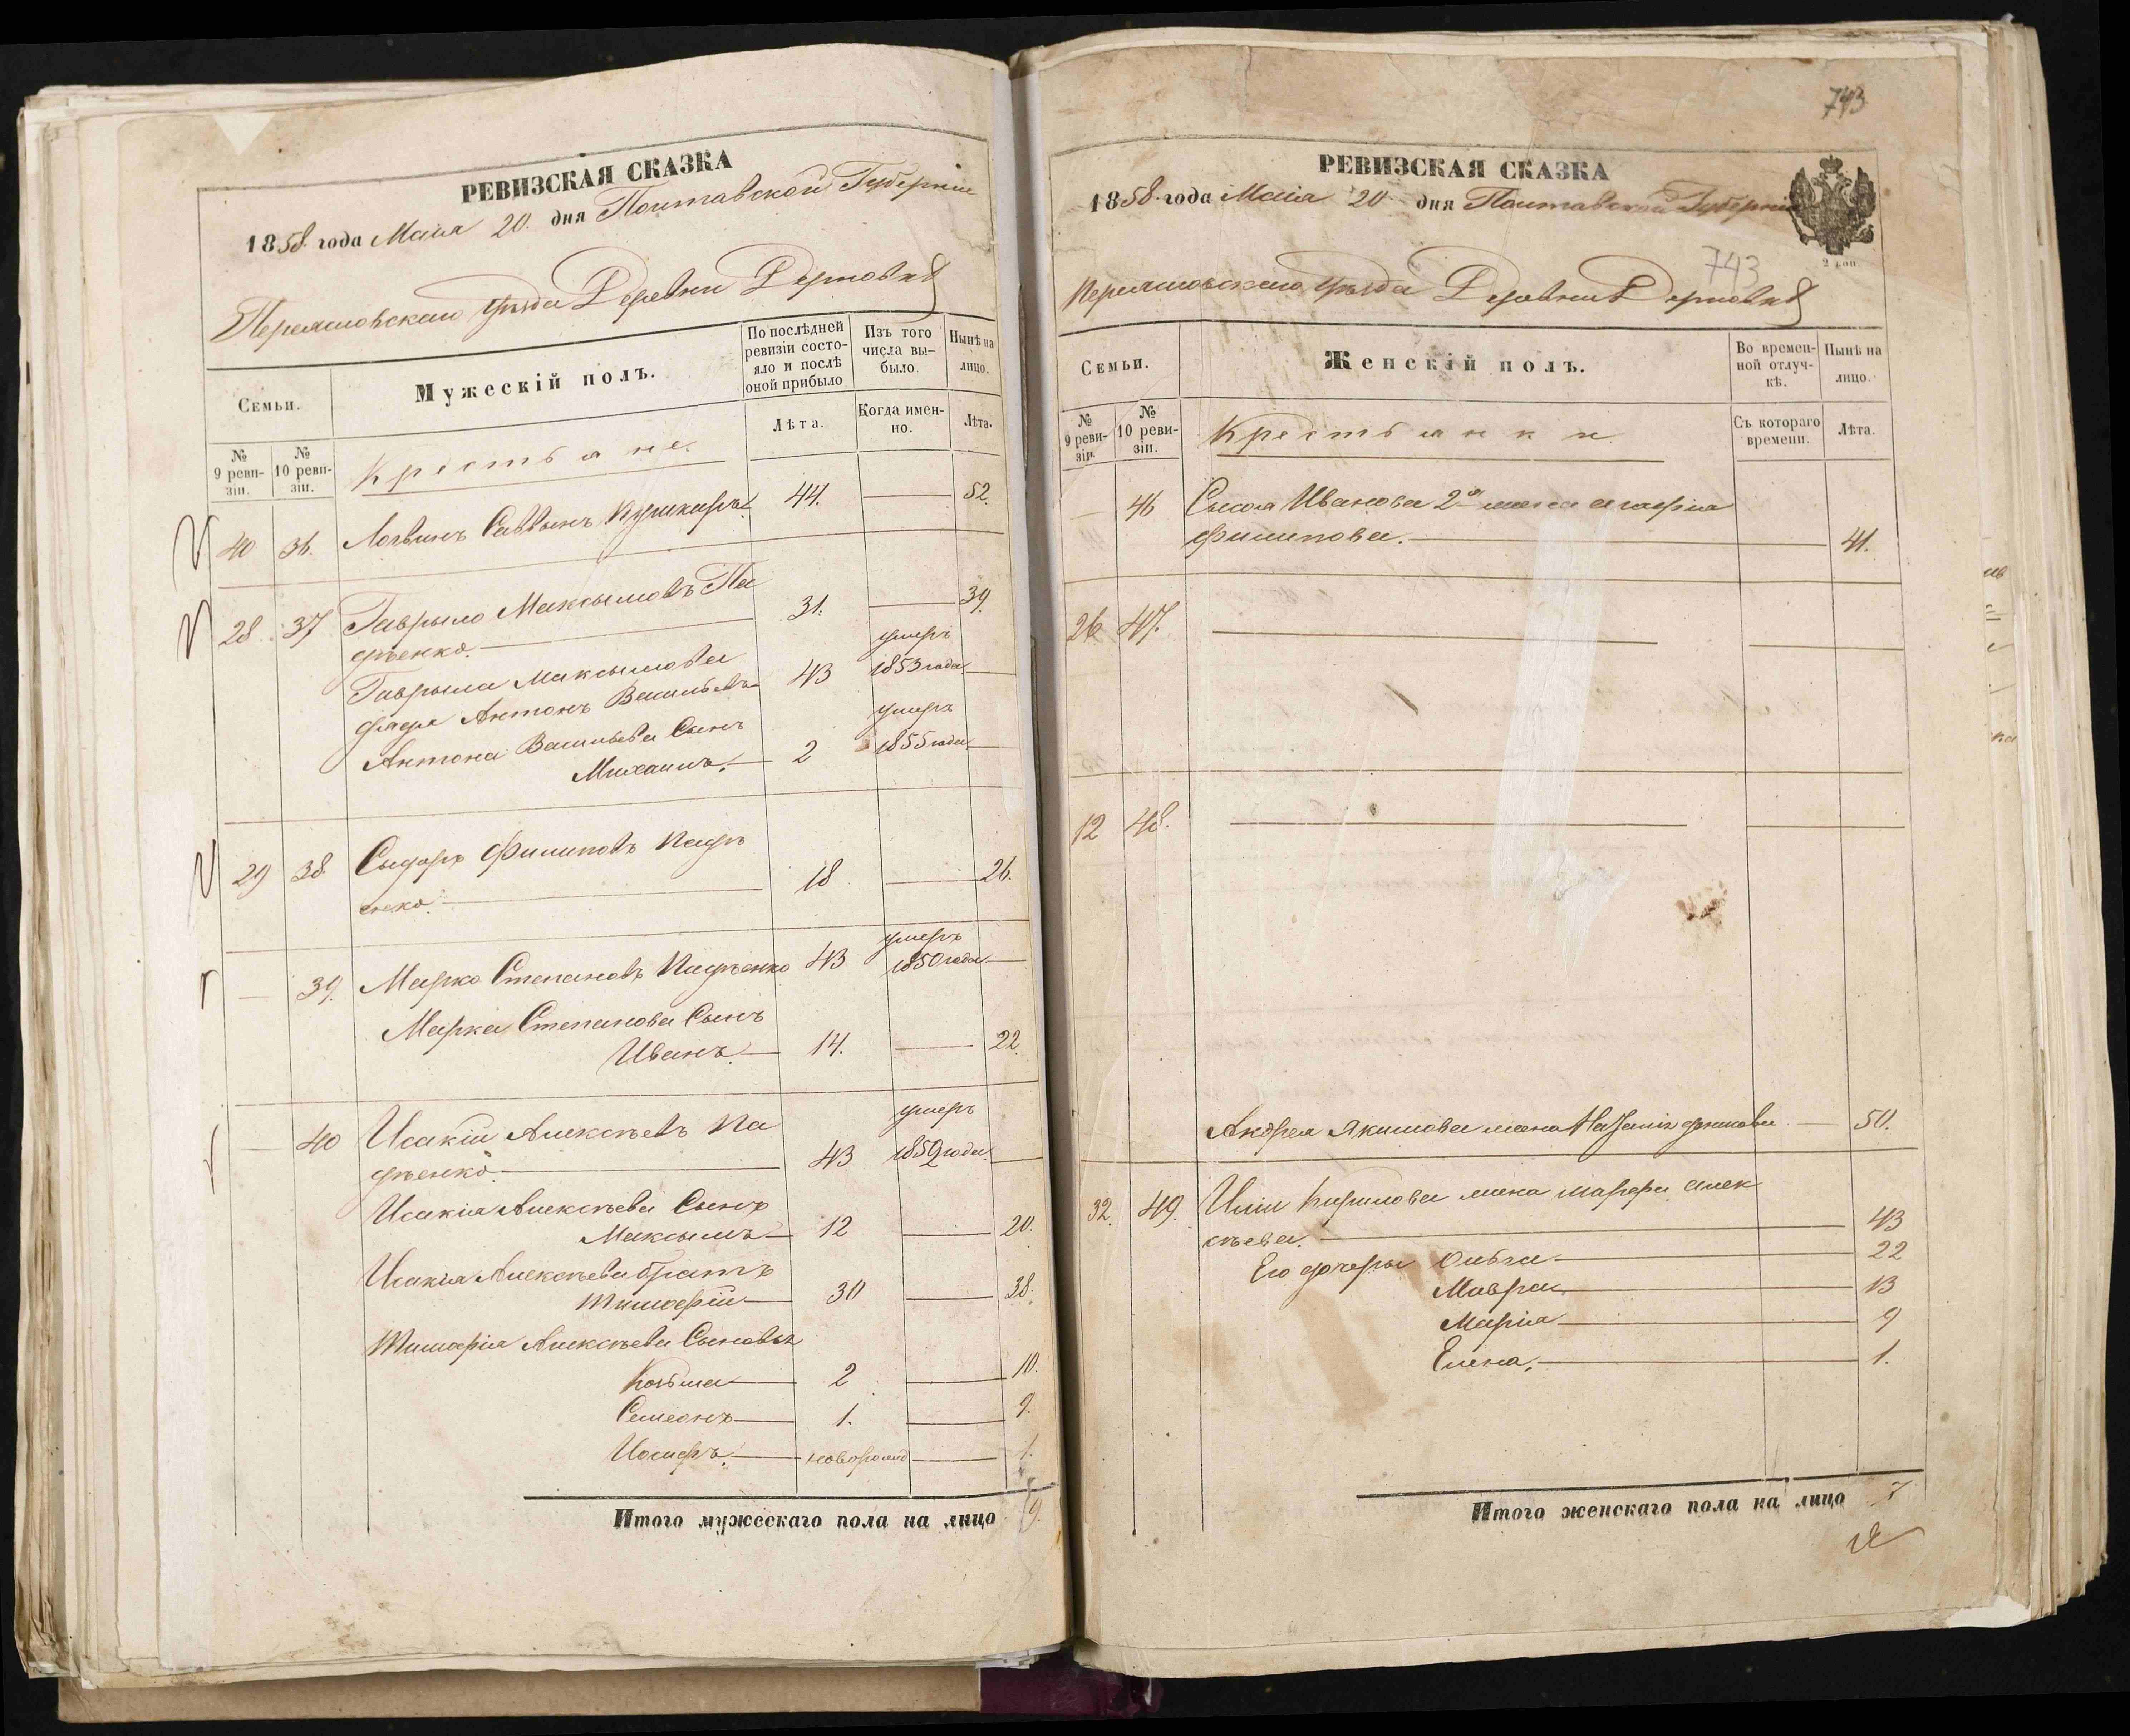 РЕВИЗСКАЯ СКАЗКА
1858 года Маія 20 дня Полтавской Губерніи
уѣзда Деревни
Семьи.
Мужескій полъ.
По послѣдней ревизіи состояло и послѣ оной прибыло
Изъ того числа выбыло.
Нынѣ на лицо.
№ 9 ревизіи.
№ 10 ревизіи.
Лѣта.
Когда именно.
Лѣта.
Крестьяне.
40 36. Логвинъ Саввинъ 44. 52.
28 37 Гаврыло Максымовъ Па
дѣенко. 31. 39.
Гаврыла Максымова умеръ
дядя Антонъ Васильевъ 43 1853 года
Антона Васильева Сынъ умеръ
Михаилъ. 2 1855 года
29 38. Сыдоръ Филиповъ Кадѣ
енко. 18 26.
умеръ
39. Марко Степановъ 43 1850 года
Марка Степанова Сынъ
Иванъ. 14. 22.
умеръ
40 Исакій Алексѣевъ Ка
дѣенко. 43 1852 года.
Исакія Алексѣева Сынъ
Максымъ 12 20.
Исакія Алексѣева братъ
Тимофій 30 38.
Тимофія Алексѣева Сыновья
Козьма 2 10.
Семеонъ 1. 9.
Иосифъ. 1.
Итого мужескаго пола на лицо 9.
743
РЕВИЗСКАЯ СКАЗКА
1858 года Маія 20 дня Полтавской Губерніи
743
2 коп.
уѣзда Деревни
Семьи.
Женскій полъ.
Во временной отлучкѣ.
Нынѣ на лицо.
№ 9 ревизіи.
№ 10 ревизіи.
Съ котораго времени.
Лѣта.
Крестьянки.
46 Иванова 2я жена Агафія
Филипова. 41.
26 47.
12 48.
Андрея Якимова жена 50.
32. 49. Иліи Кирилова жена Марфа Алек
сѣева. 43
Его дочери Ольга 22
Мавра 13
Марія 9
Елена. 1.
Итого женскаго пола на лицо 7